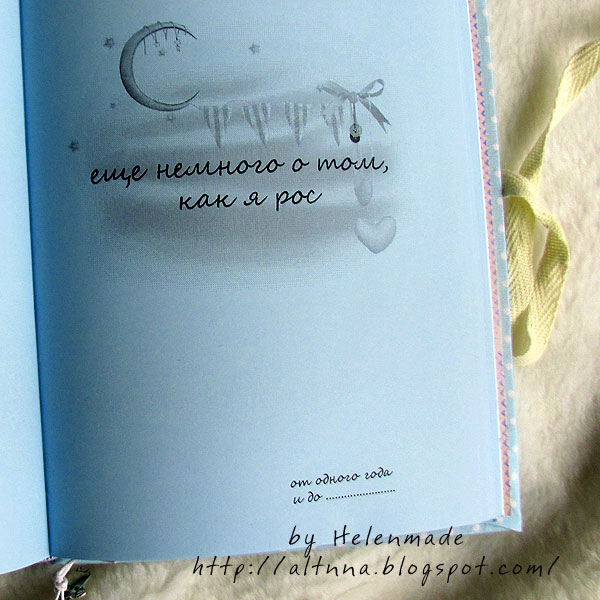 еще немного о том,
как я рос
от одного года
и до ........................
by Helenmade
http://altnna.blogspot.com/